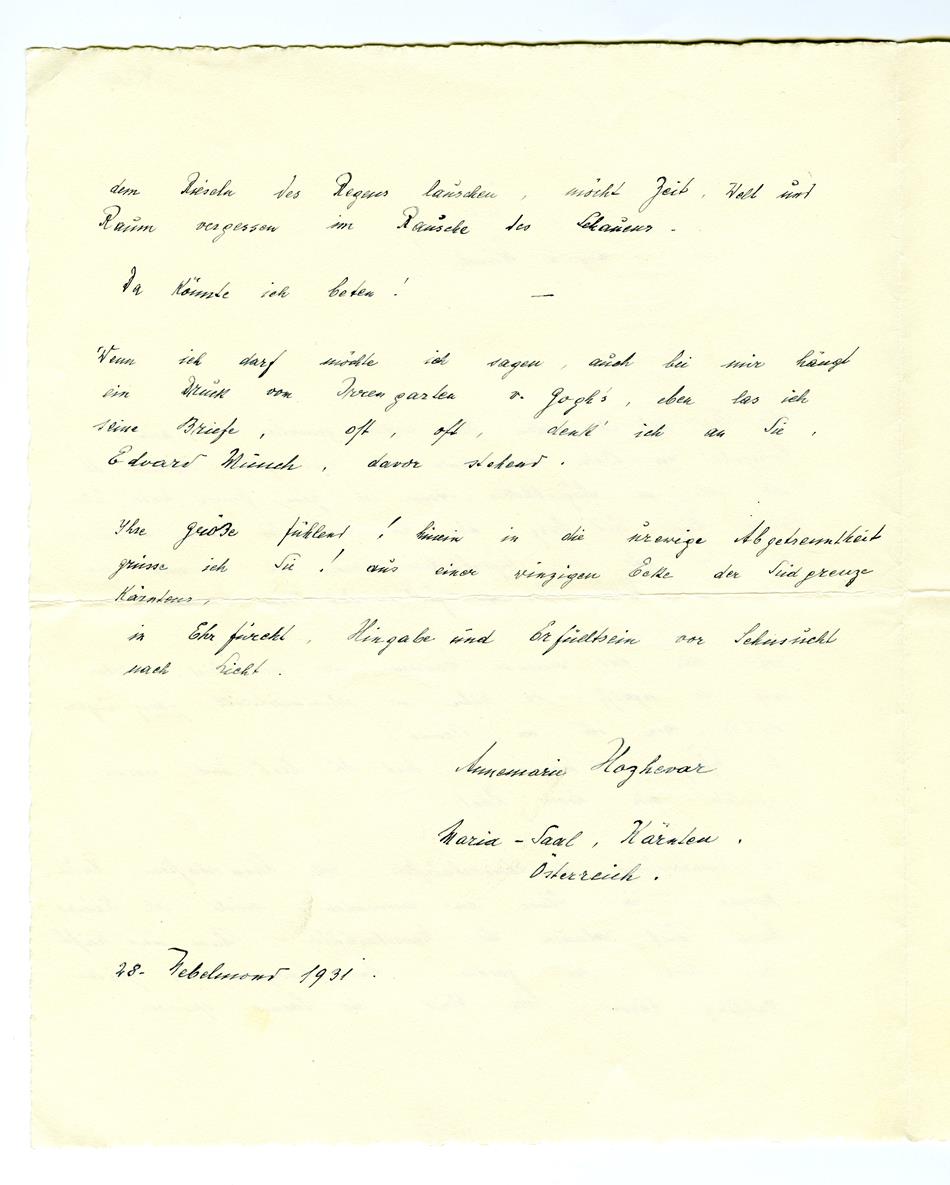 dem Rieseln des Regens lauschen, möcht Zeit, Welt und
Raum vergessen im Rausche des Schauens.
Da könnte ich beten! —
Wenn ich darf möchte ich sagen, auch bei mir hängt
ein Druck von Irrengarten v. Gogh's, eben las ich
seine Briefe, oft, oft, denk' ich an Sie,
Edvard Munch, davor stehend.
Ihre Größe fühlend! hinein in die urewige Abgetrenntheit
grüsse ich Sie! aus einer winzigen Ecke der Südgrenze
Kärntens,
in Ehrfurcht, Hingabe und Erfülltsein vor Sehnsucht
nach Licht.
Annemarie Hozhevar
Maria-Saal, Kärnten.
Österreich.
28. Nebelmond 1931.